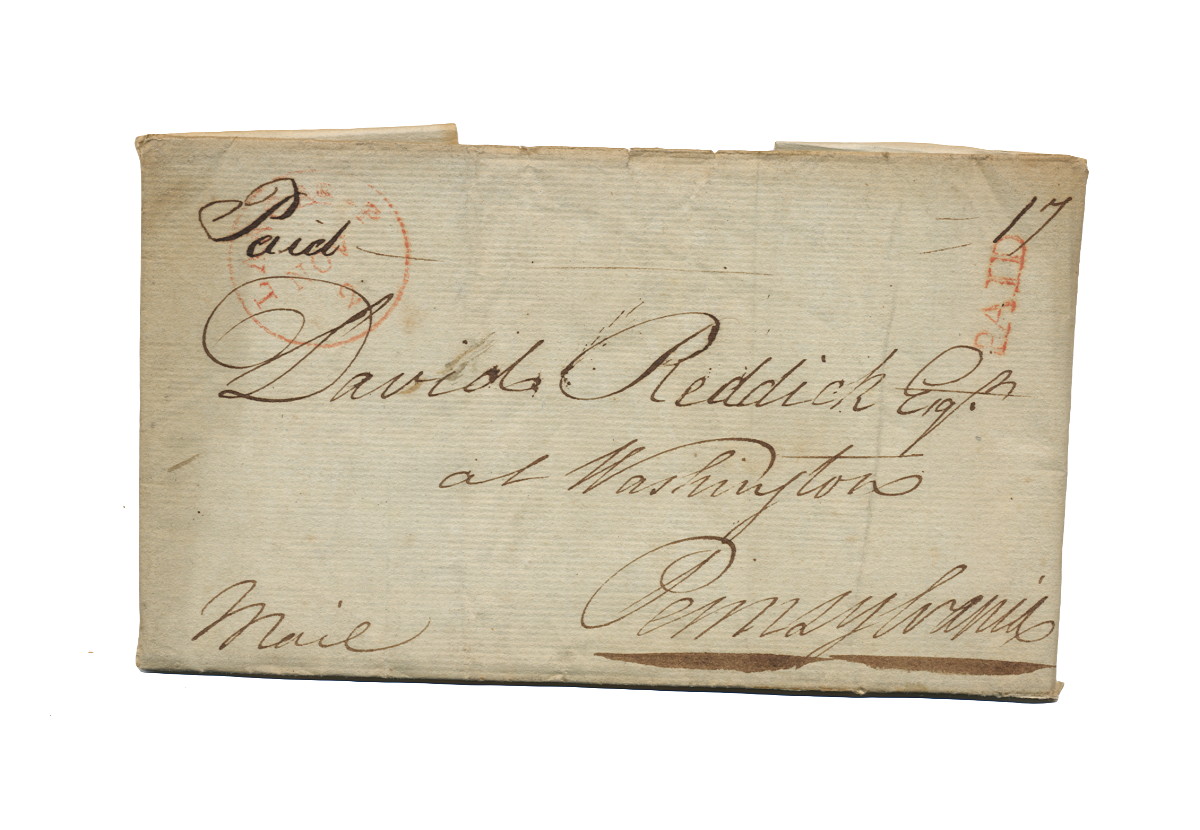 Paid 17
PAID
David Reddick Esqr.
at Washington
Pennsylvania
Mail